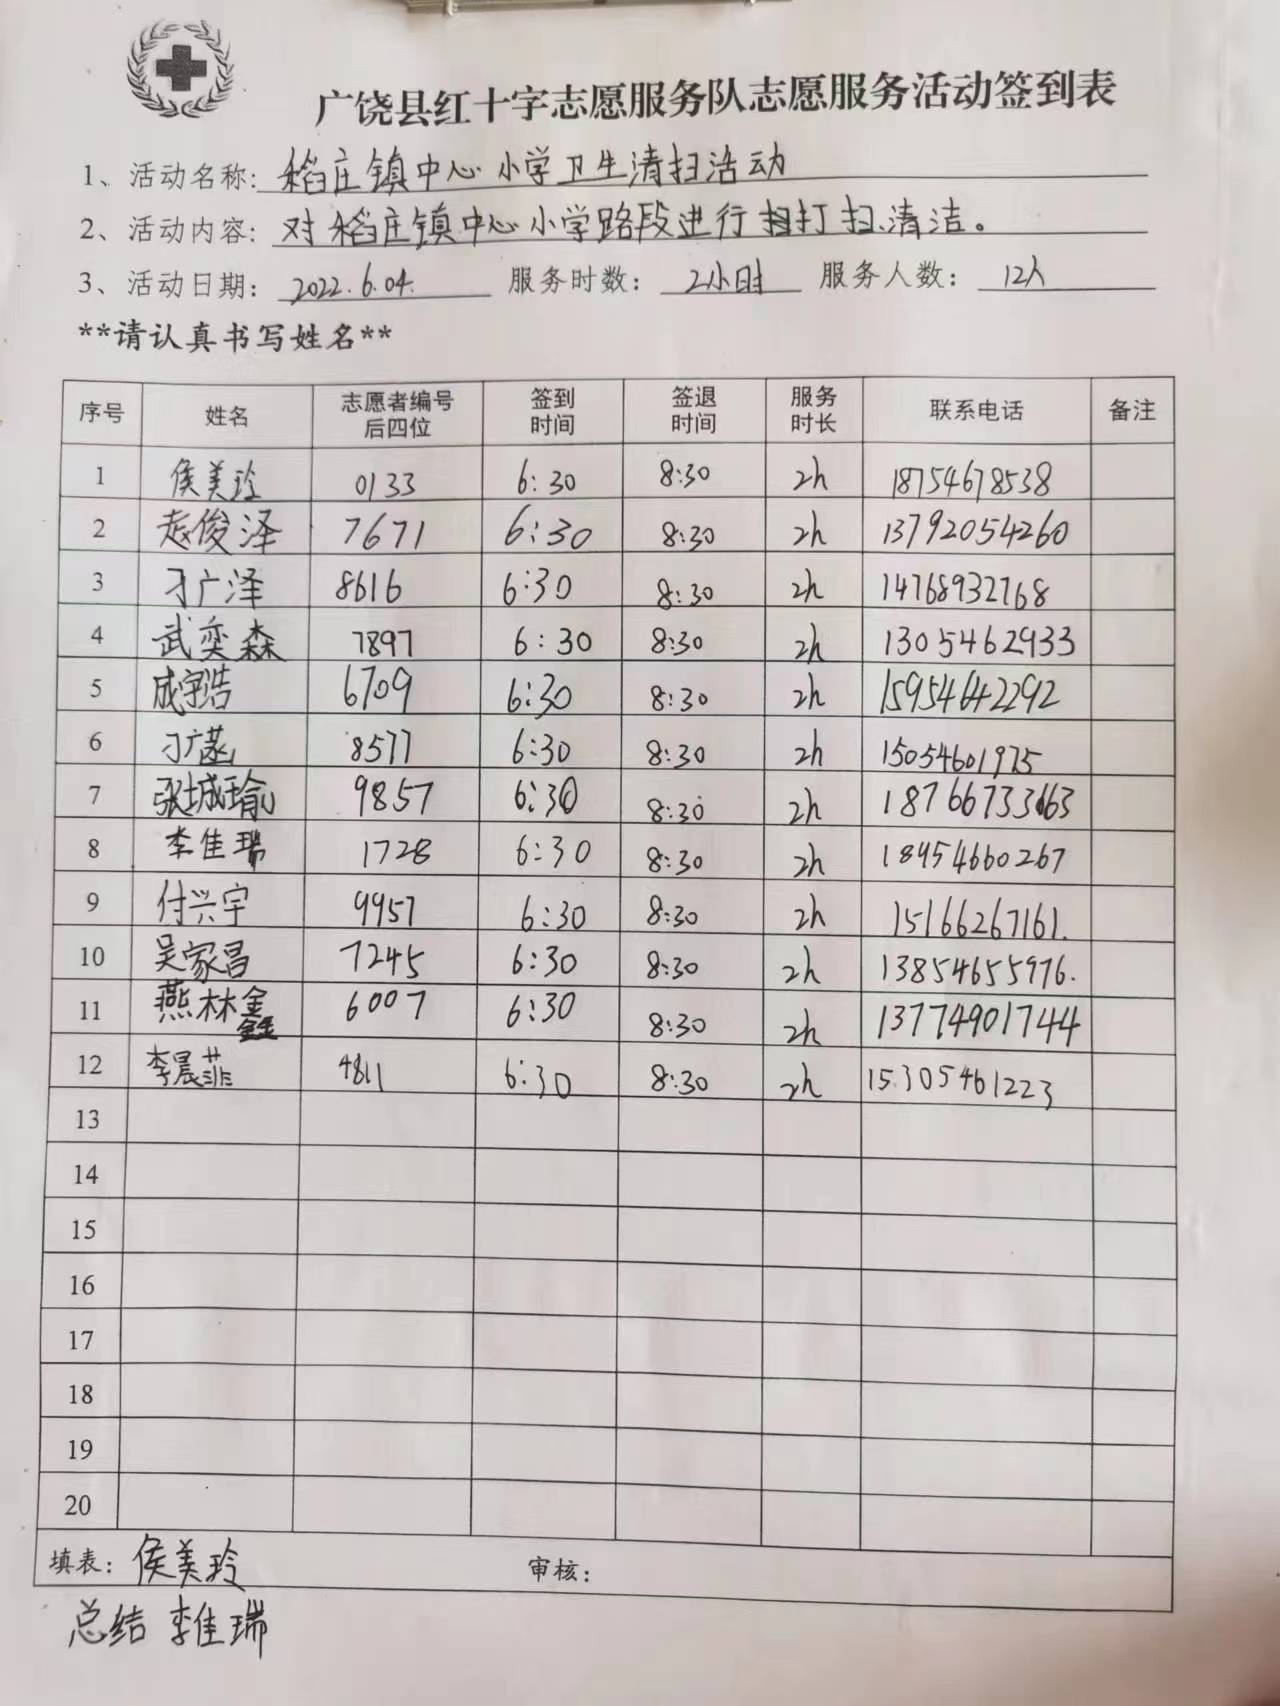 广饶县红十字志愿服务队志愿服务活动签到表
1、活动名称: 稻庄镇中心小学卫生清扫活动
2、活动内容: 对稻庄镇中心小学路段进行打扫清洁。
3、活动日期: 2022.6.04. 服务时数: 2小时 服务人数: 12人
**请认真书写姓名**
序号 姓名 志愿者编号后四位 签到时间 签退时间 服务时长 联系电话 备注
1 侯美玲 0133 6:30 8:30 2h 18754678538
2 赵俊泽 7671 6:30 8:30 2h 13792054260
3 刁广泽 8616 6:30 8:30 2h 14768932768
4 武奕森 7897 6:30 8:30 2h 1305462933
5 成宇浩 6709 6:30 8:30 2h 15954642292
6 刁广菡 8577 6:30 8:30 2h 15054601975
7 张城瑜 9857 6:30 8:30 2h
8 李佳瑞 1728 6:30 8:30 2h 18954660267
9 付兴宇 9957 6:30 8:30 2h 15166267161.
10 吴家昌 7245 6:30 8:30 2h 13854655976.
11 燕林鑫 6007 6:30 8:30 2h 13774901744
12 李晨菲 4811 6:30 8:30 2h 15305461223
13
14
15
16
17
18
19
20
填表: 侯美玲 审核:
总结 李佳瑞